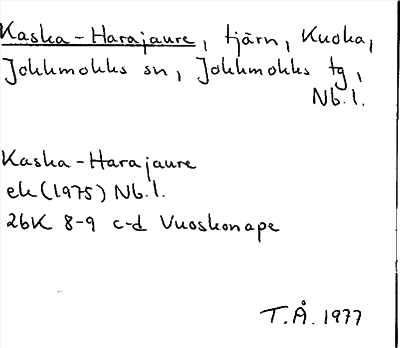 Kaska-Harajaure, tjärn, Kuoka,
Jokkmokks sn, Jokkmokks tg,
Nb.l.
Kaska-Harajaure
ek (1975) Nb.l.
26K 8-9 c-d Vuoskonape
T.Å. 1977